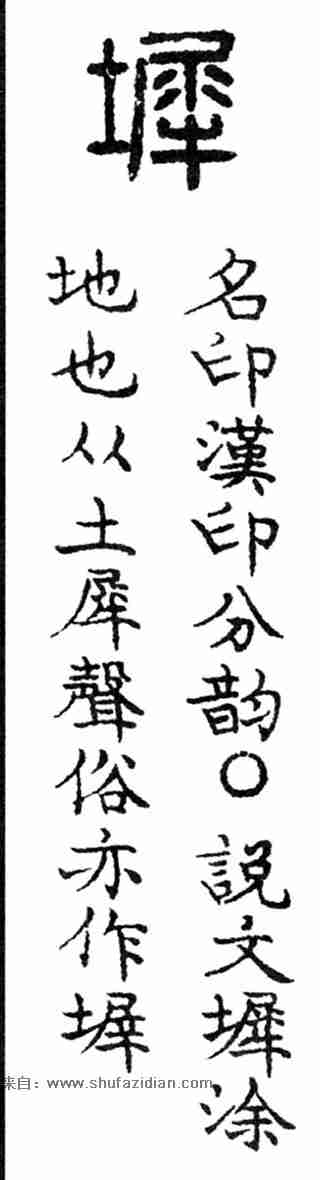 墀
名印漢印分韵〇説文墀涂
地也从土犀聲俗亦作墀
来自：www.shufazidian.com